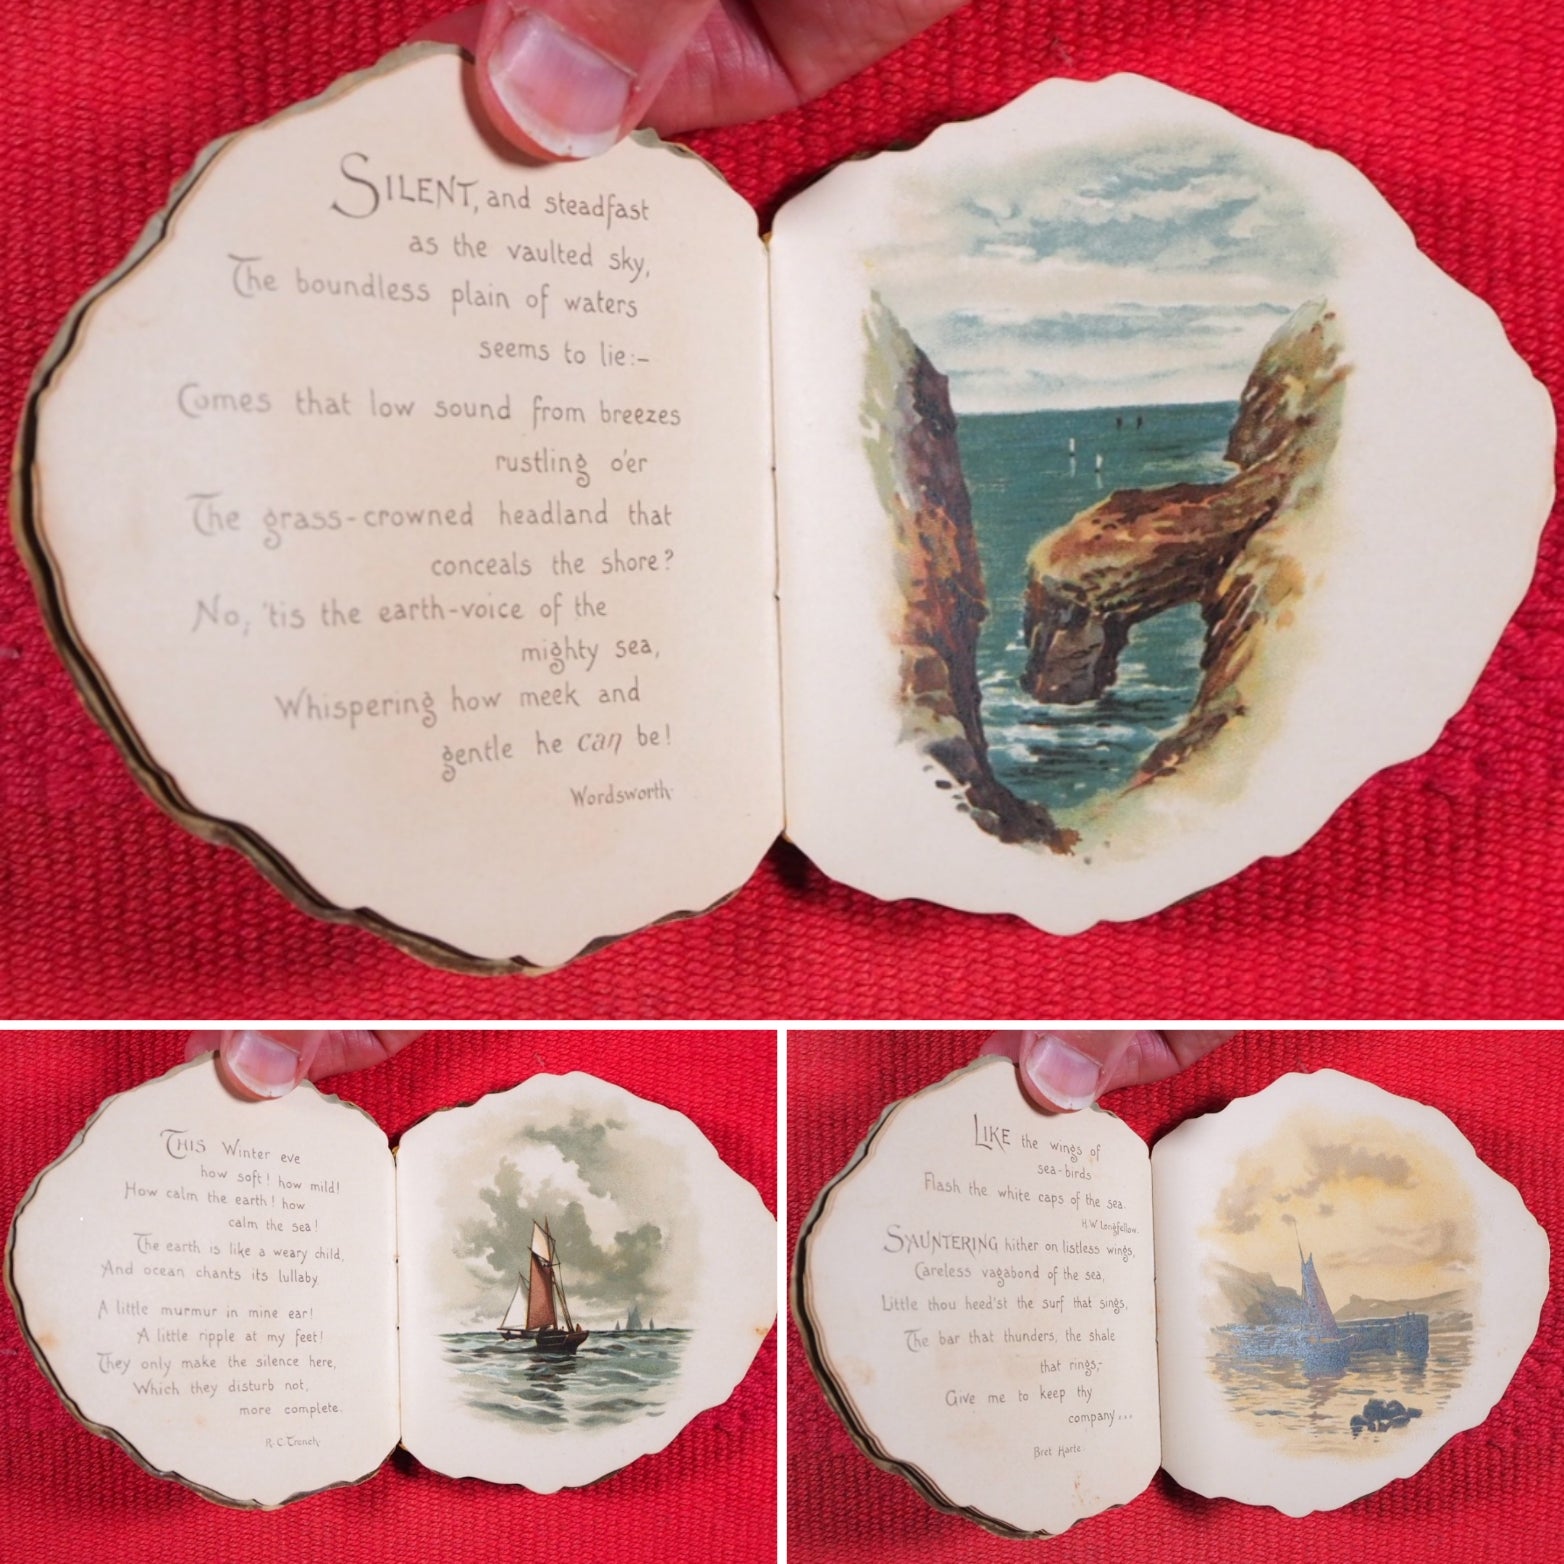 SILENT, and steadfast
as the vaulted sky,
The boundless plain of waters
seems to lie:-
Comes that low sound from breezes
rustling o'er
The grass-crowned headland that
conceals the shore?
No; 'tis the earth-voice of the
mighty sea,
Whispering how meek and
gentle he can be!
Wordsworth.
THIS Winter eve
how soft! how mild!
How calm the earth! how
calm the sea!
The earth is like a weary child,
And ocean chants its lullaby.
A little murmur in mine ear!
A little ripple at my feet!
They only make the silence here,
Which they disturb not,
more complete.
R.C.Trench.
LIKE the wings of
sea-birds
Flash the white caps of the sea.
H.W. Longfellow.
SAUNTERING hither on listless wings,
Careless vagabond of the sea,
Little thou heed'st the surf that sings,
The bar that thunders, the shale
that rings,-
Give me to keep thy
company...
Bret Harte.